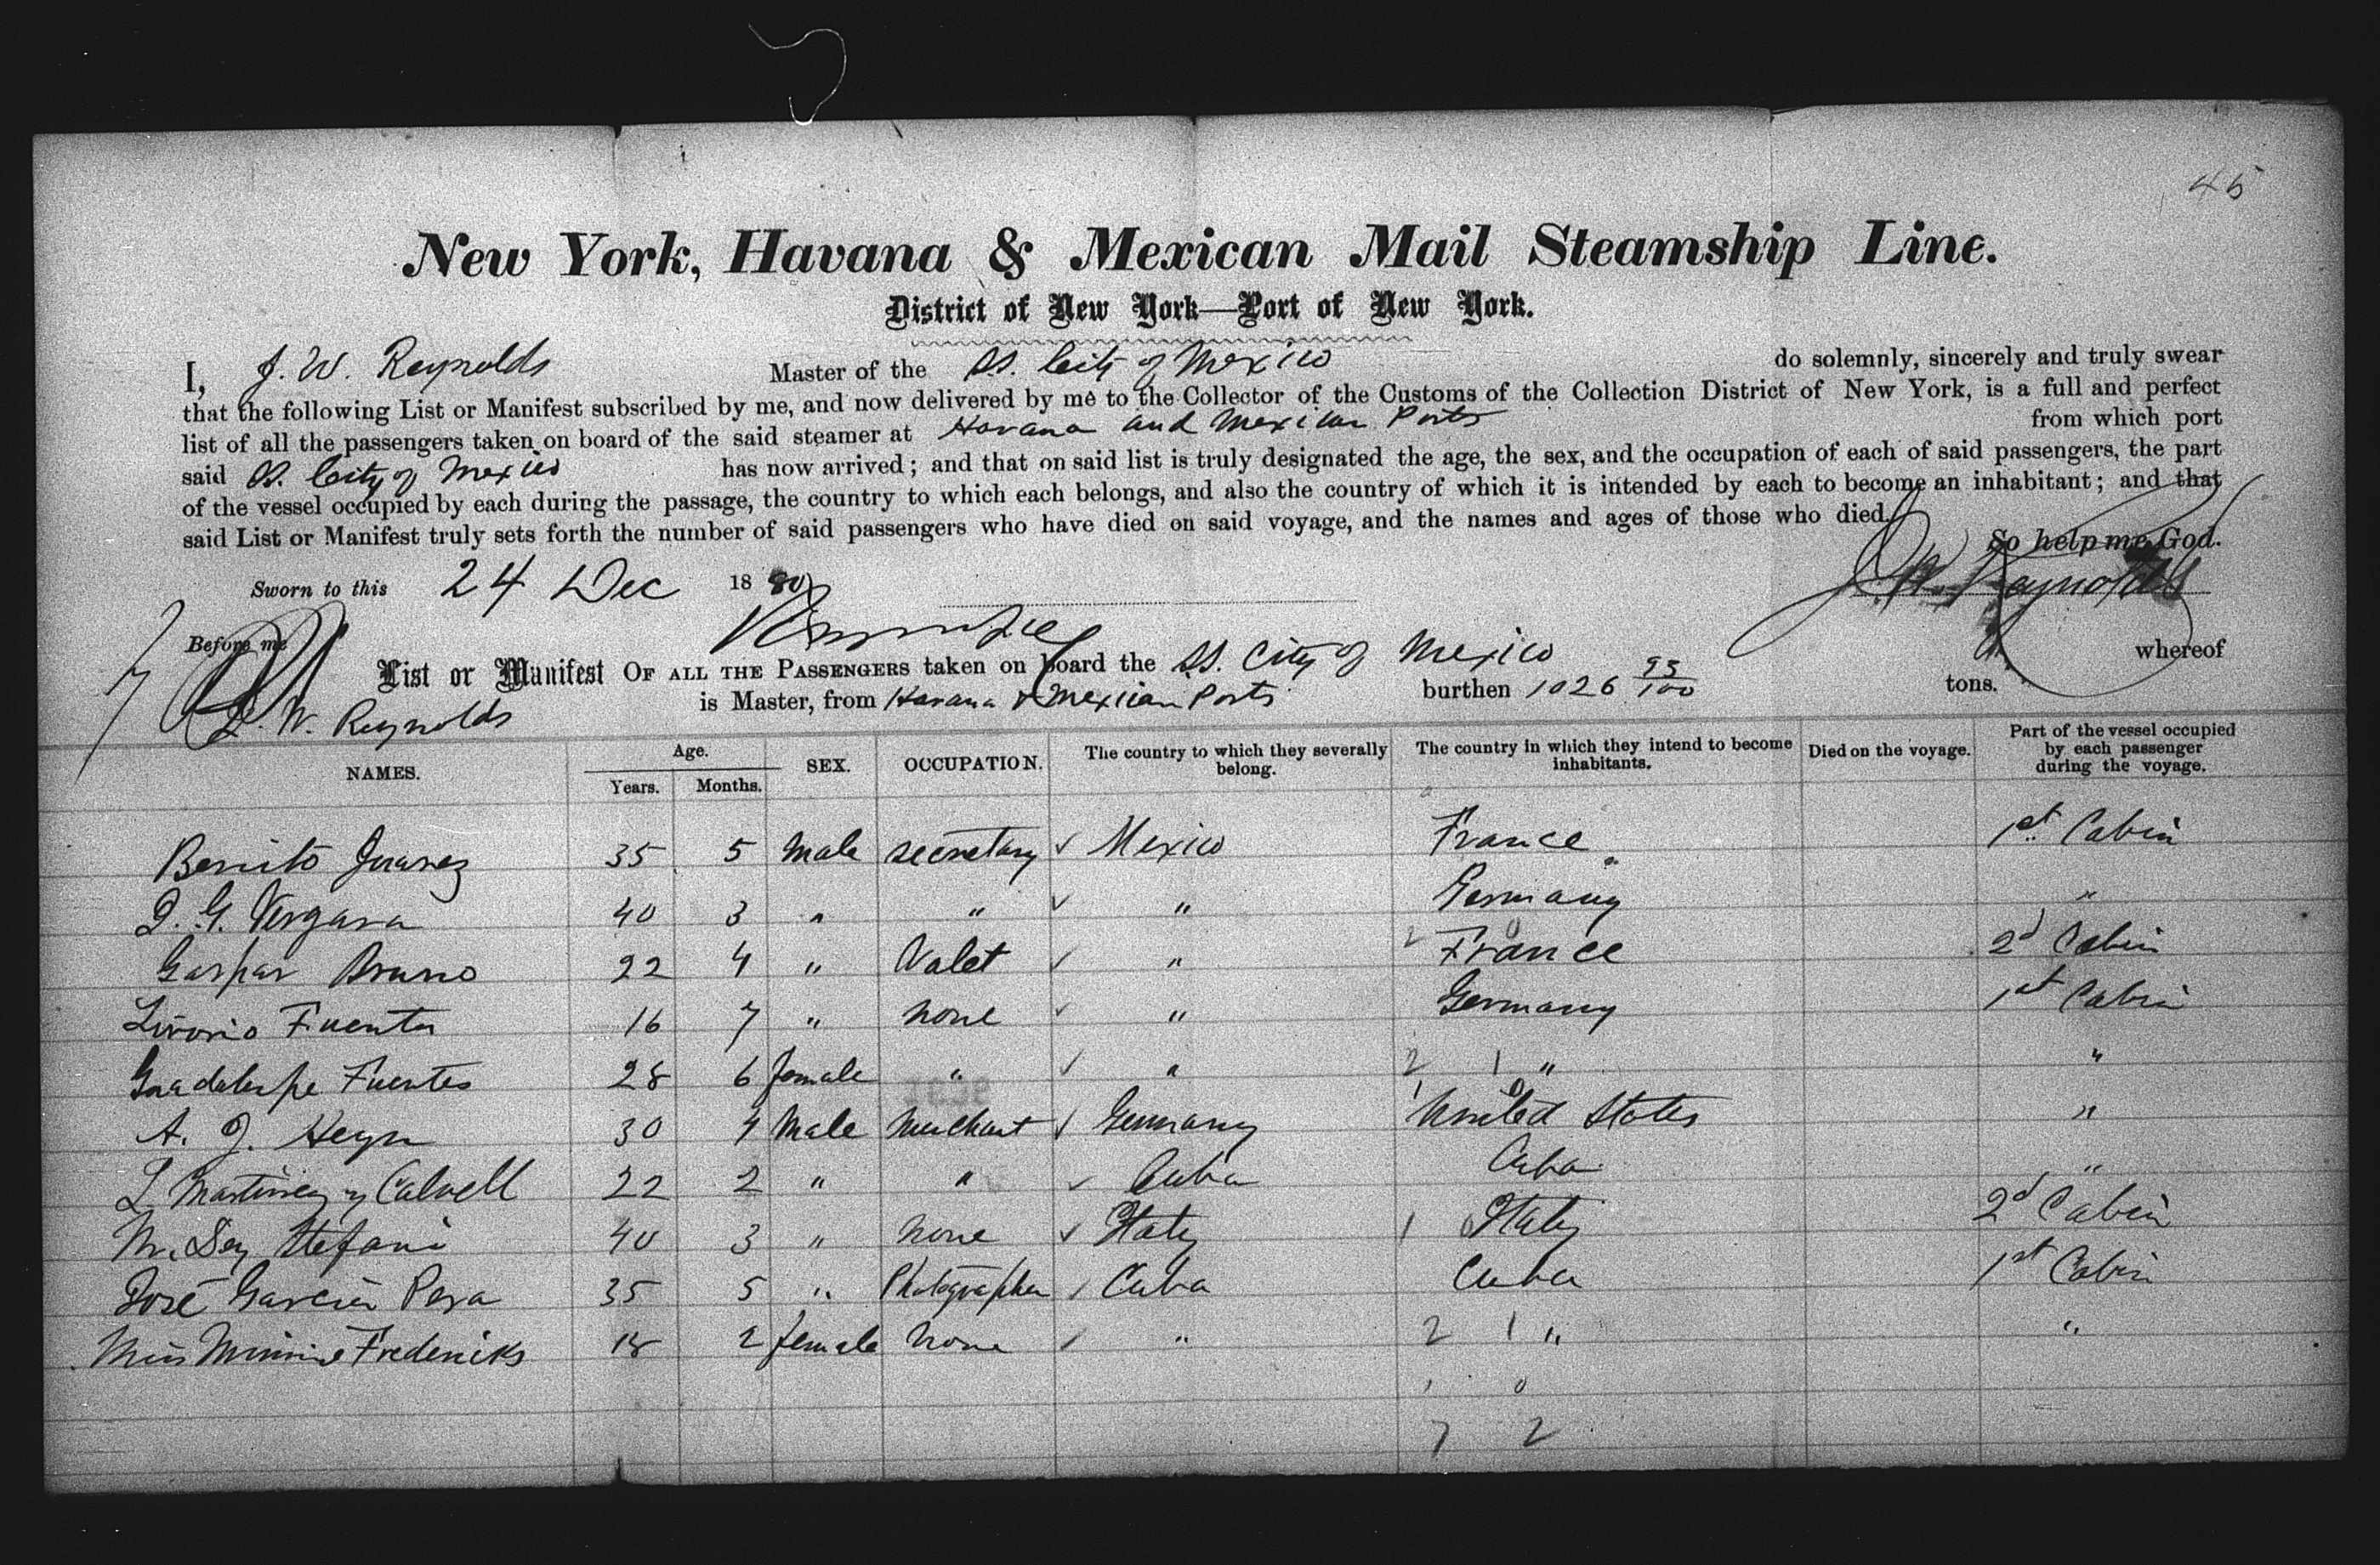 45
New York, Havana & Mexican Mail Steamship Line.
District of New York—Port of New York.
I, J. W. Reynolds Master of the SS. City of Mexico do solemnly, sincerely and truly swear
that the following List or Manifest subscribed by me, and now delivered by me to the Collector of the Customs of the Collection District of New York, is a full and perfect
list of all the passengers taken on board of the said steamer at Havana and Mexican Ports from which port
said SS. City of Mexico has now arrived; and that on said list is truly designated the age, the sex, and the occupation of each of said passengers, the part
of the vessel occupied by each during the passage, the country to which each belongs, and also the country of which it is intended by each to become an inhabitant; and that
said List or Manifest truly sets forth the number of said passengers who have died on said voyage, and the names and ages of those who died.
So help me God.
Sworn to this 24 Dec 1880 J. W. Reynolds
Before me
List or Manifest OF ALL THE PASSENGERS taken on board the SS. City of Mexico whereof
J. W. Reynolds is Master, from Havana & Mexican Ports burthen 1026 93/100 tons.
NAMES. Age. Years. Months. SEX. OCCUPATION. The country to which they severally belong. The country in which they intend to become inhabitants. Died on the voyage. Part of the vessel occupied by each passenger during the voyage.
Benito Juarez 35 5 Male secretary ✓ Mexico France 1st Cabin
D. G. Vergara 40 3 " " ✓ " Germany "
Gaspar Bruno 22 4 " Valet ✓ " 2 0 France 2d Cabin
Fuentes 16 7 " none ✓ " Germany 1st Cabin
Guadalupe Fuentes 28 6 female " ✓ " 2 1 " "
A. J. Heyn 30 4 Male Merchant ✓ Germany 1 0 United States "
L Martinez y Calvell 22 2 " " ✓ Cuba Cuba "
Stefani 40 3 " none ✓ Italy 1 Italy 2d Cabin
José Garcia 35 5 " Photographer ✓ Cuba Cuba 1st Cabin
Miss Minnie Frederiks 18 2 female none ✓ " 2 1 " "
1 0
7 2